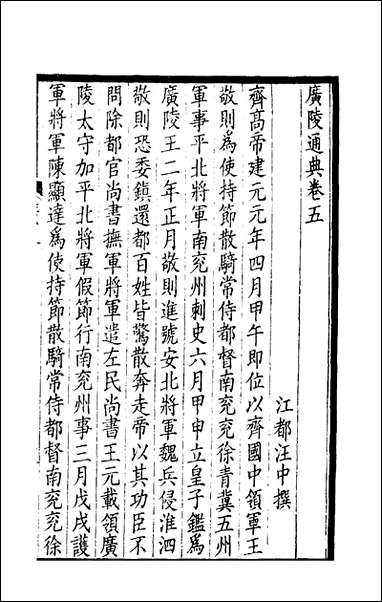 廣陵通典卷五
江都汪中撰
齊高帝建元元年四月甲午即位以齊國中領軍王
敬則為使持節散騎常侍都督南兖兖徐青冀五州
軍事平北將軍南兖州刺史六月甲申立皇子鑑為
廣陵王二年正月敬則進號安北將軍魏兵侵淮泗
敬則恐委鎮還都百姓皆驚散奔走帝以其功臣不
問除都官尚書撫軍將軍遣左民尚書王元載領廣
陵太守加平北將軍假節行南兖州事三月戊戌護
軍將軍陳顯達為使持節散騎常侍都督南兖兖徐